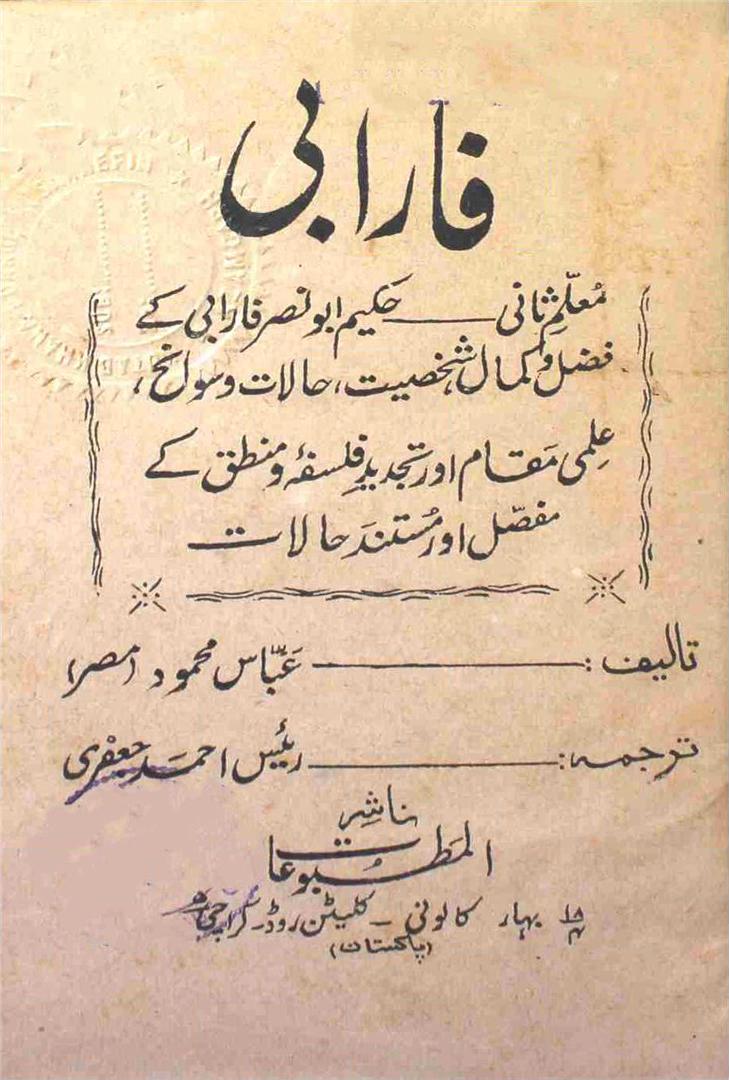 فارابی
مُعلّمِ ثانی — حکیم ابو نصر فارابی کے
فضل و کمال، شخصیت، حالات و سوانح،
عِلمی مَقام اور تجدیدِ فلسفۂ و منطق کے
مفصّل اور مُستند حالات
تالیف: — عَبّاس محمود (مصر)
ترجمہ: — رئیس احمد جعفری
ناشِر
المَطبُوعات
۱۸/۴ بہار کالونی - کلیٹن روڈ - کراچی ۵
(پاکستان)